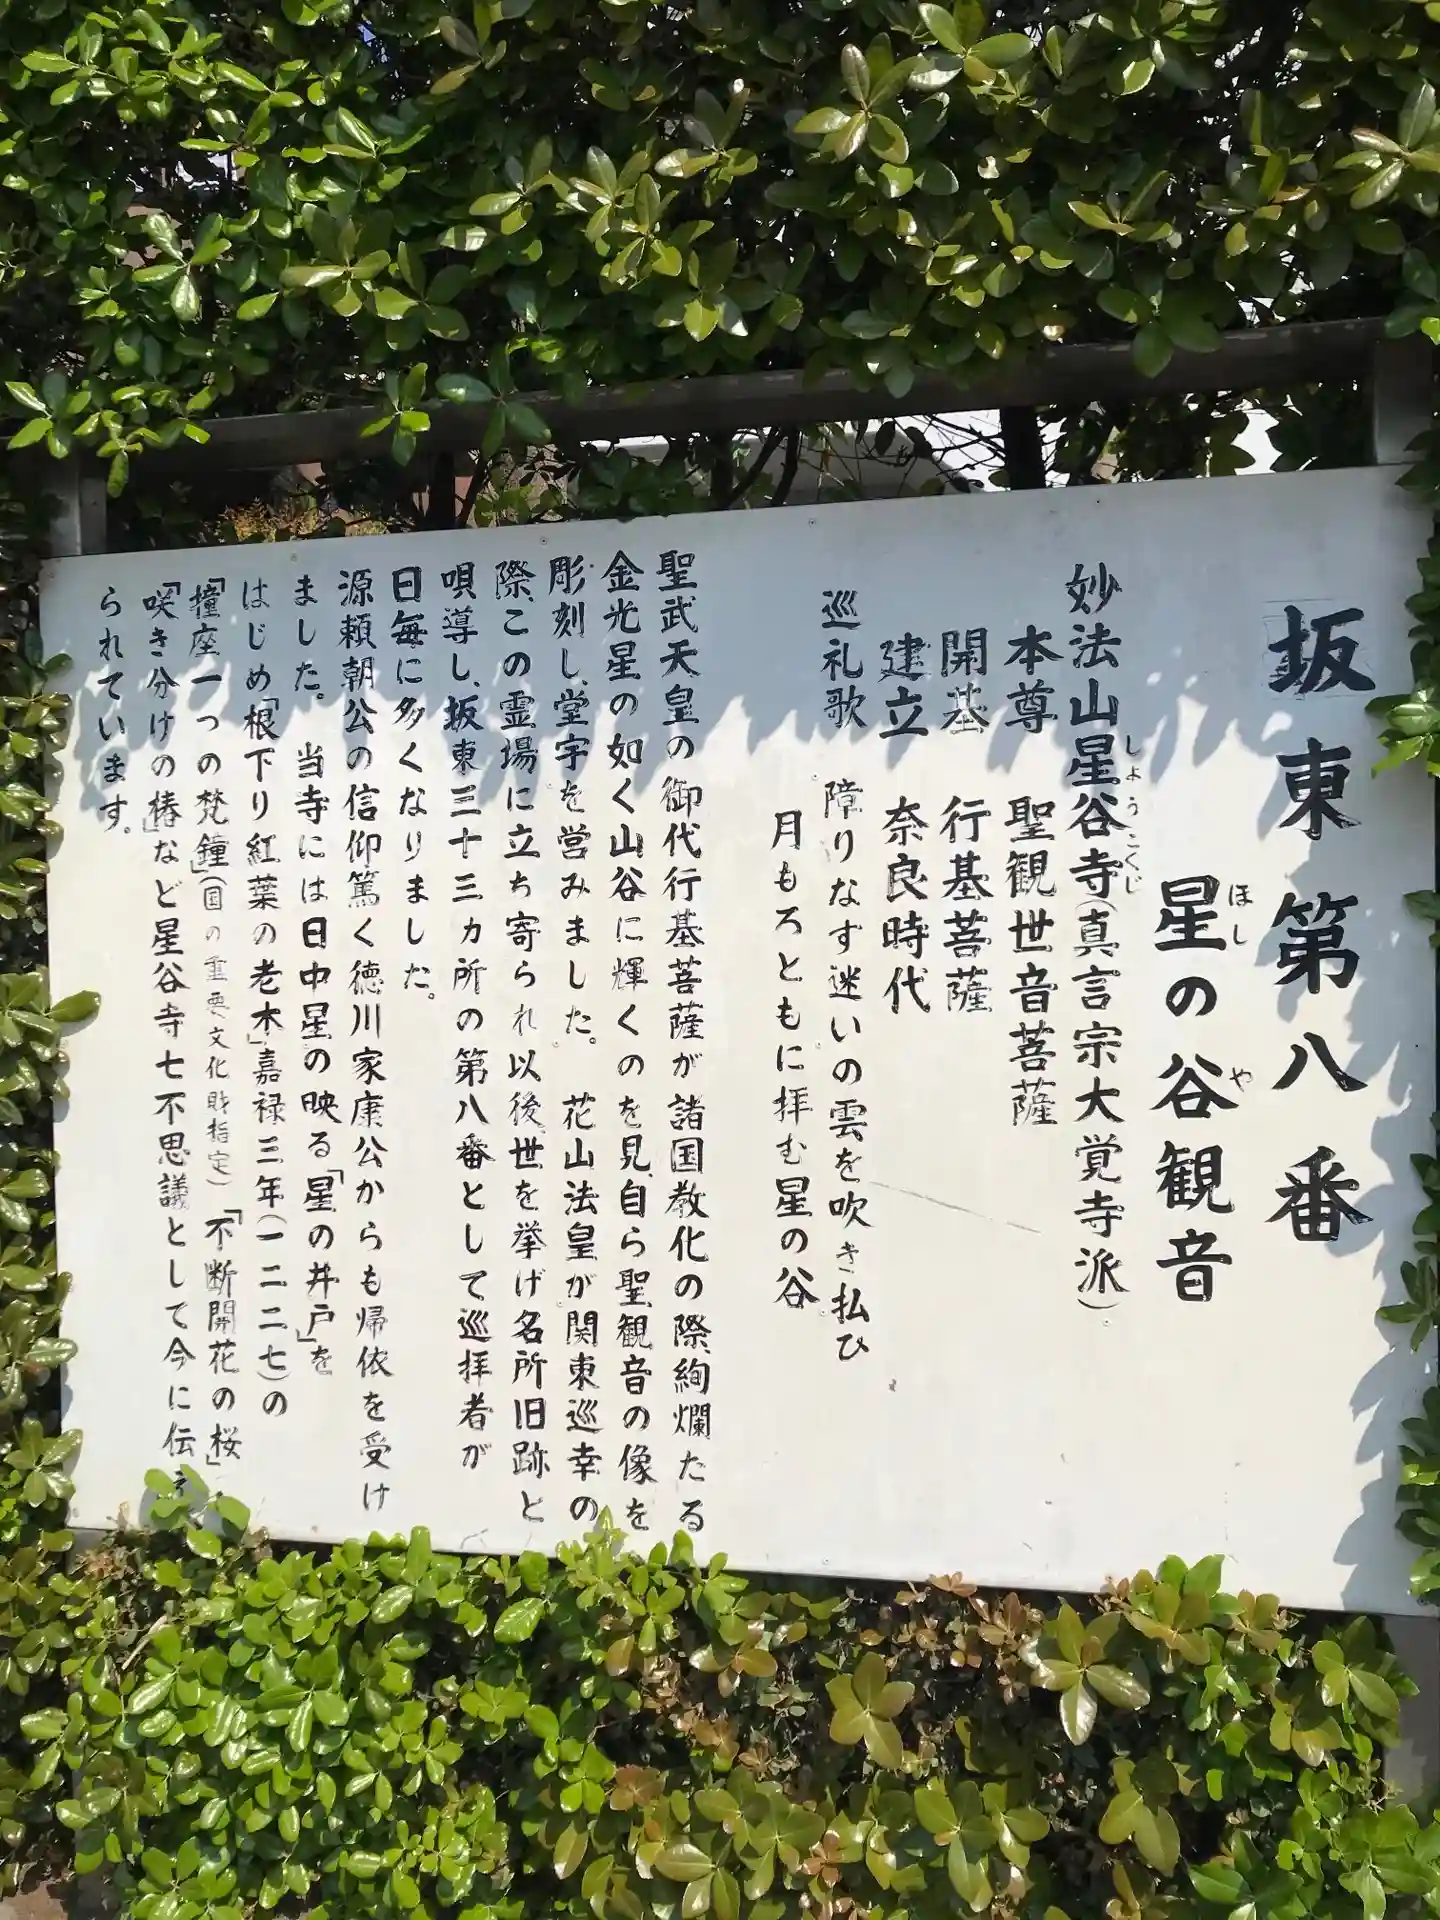 坂東第八番
星の谷観音
ほし
や
妙法山星谷寺(真言宗大覚寺派)
しょうこくじ
本尊 聖観世音菩薩
開基 行基菩薩
建立 奈良時代
巡礼歌 障りなす迷いの雲を吹き払ひ
月もろともに拝む星の谷
聖武天皇の御代行基菩薩が諸国教化の際、絢爛たる
金光星の如く山谷に輝くのを見、自ら聖観音の像を
彫刻し、堂宇を営みました。 花山法皇が関東巡幸の
際、この霊場に立ち寄られ以後、世を挙げ名所旧跡と
唄導し、坂東三十三カ所の第八番として巡拝者が
日毎に多くなりました。
源頼朝公の信仰篤く徳川家康公からも帰依を受け
ました。 当寺には日中星の映る「星の井戸」を
はじめ「根下り紅葉の老木」嘉禄三年(一二二七)の
「撞座一つの梵鐘」(国の重要文化財指定)「不断開花の桜」
「咲き分けの椿」など星谷寺七不思議として今に伝え
られています。